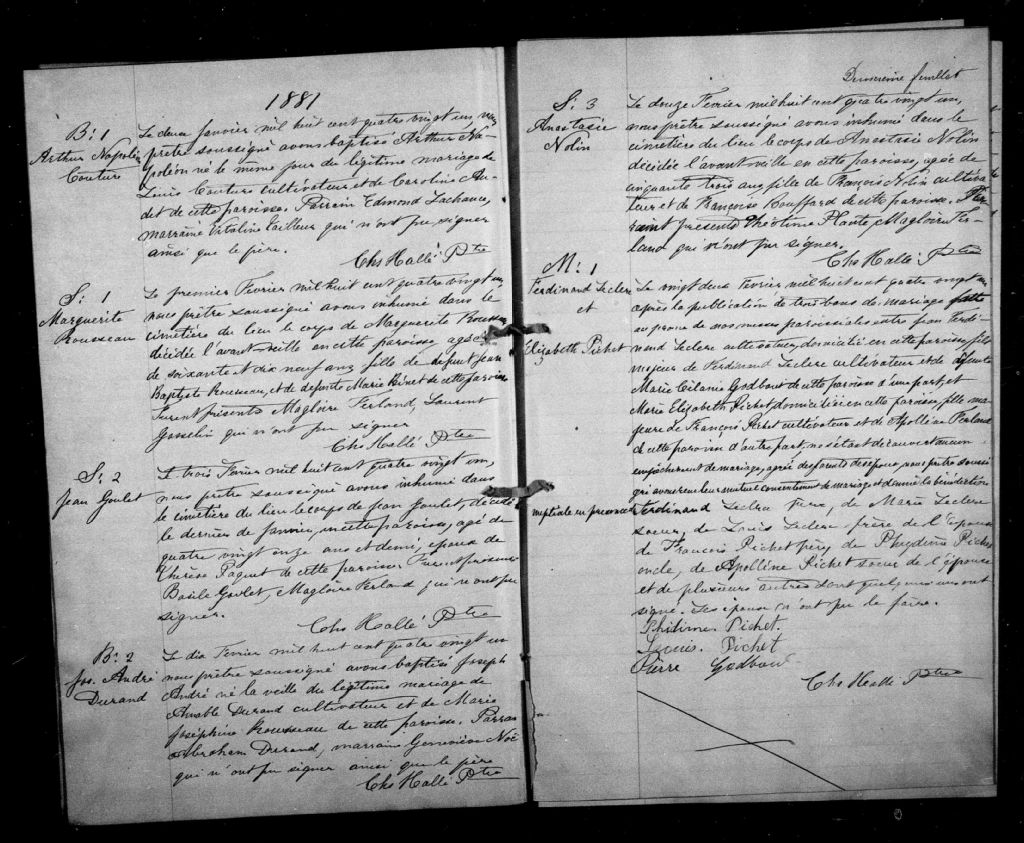 1881
B: 1
Arthur Napoléon
Couture
Le deux Janvier mil huit cent quatre vingt un, nous
prêtre soussigné avons baptisé Arthur Na-
poléon né le même jour du légitime mariage de
Louis Couture cultivateur et de Caroline Au-
det de cette paroisse. Parrain Edmond Lachance,
marraine Vitaline Cailleur qui n'ont pu signer
ainsi que le père.
Chs Hallé Ptre
S: 1
Marguerite
Rousseau
Le premier Fevrier mil huit cent quatre vingt un,
nous prêtre soussigné avons inhumé dans le
cimetière du lieu le corps de Marguerite Rousseau
décidée l'avant-veille en cette paroisse agée
de soixante et dix neuf ans fille de defunt Jean
Baptiste Rousseau, et de defunte Marie Binet de cette paroisse
Furent présents Magloire Ferland, Laurent
Gosselin qui n'ont pu signer
Chs Hallé Ptre
S: 2
Jean Goulet
Le trois Fevrier mil huit cent quatre vingt un,
nous prêtre soussigné avons inhumé dans
le cimetière du lieu le corps de Jean Goulet, décidé
le dernier de Janvier, en cette paroisse, agé de
quatre vingt onze ans et demi, epoux de
Thérèse Paquet de cette paroisse Furent présents
Basile Goulet, Magloire Ferland qui n'ont pu
signer.
Chs Hallé Ptre
B: 2
Jos. André
Durand
Le dix Fevrier mil huit cent quatre vingt un
nous prêtre soussigné avons baptisé Joseph
André né la veille du légitime mariage de
Amable Durand cultivateur et de Marie
Joséphine Rousseau de cette paroisse. Parrain
Abraham Durand, marraine Geneviève Noë
qui n'ont pu signer ainsi que le père
Chs Hallé Ptre
Deuxieme feuillet
S: 3
Anastasie
Nolin
Le douze Fevrier mil huit cent quatre vingt un,
nous prêtre soussigné avons inhumé dans le
cimetière du lieu le corps de Anastasie Nolin
décidée l'avant-veille en cette paroisse, agée de
cinquante trois ans, fille de François Nolin cultiva-
teur et de Françoise Bouffard de cette paroisse. Fu-
rent présents Théotime Plante, Magloire Fer-
land qui n'ont pu signer.
Chs Hallé Ptre
M: 1
Ferdinand Leclerc
et
Elizabeth Pichet
Le vingt deux Fevrier mil huit cent quatre vingt un,
après la publication de trois bans de mariage faite
au prone de nos messes paroissiales entre Jean Ferdi-
nand Leclerc cultivateur, domicilié en cette paroisse, fils
majeur de Ferdinand Leclerc cultivateur et de défunte
Marie Cilanie Godbout de cette paroisse d'une part, et
Marie Elizabeth Pichet, domiciliée en cette paroisse, fille ma-
jeure de François Pichet cultivateur et de Apolline Ferland
de cette paroisse d'autre part, ne s'étant découvert aucun
empêchement de mariage, agréé des parents des époux, nous prêtre soussi-
gné avons reçu leur mutuel consentement de mariage et donné la bénédiction
nuptiale en presence de Ferdinand Leclerc père, de Marie Leclerc
soeur, de Louis Leclerc frère de l'Epoux
de François Pichet père, de Pichet
oncle, de Apolline Pichet soeur de l'épouse
et de plusieurs autres dont quelques uns ont
signé. Les époux n'ont pu le faire.
Philime. Pichet.
Louis. Pichet
Pierre Godbout
Chs Hallé Ptre